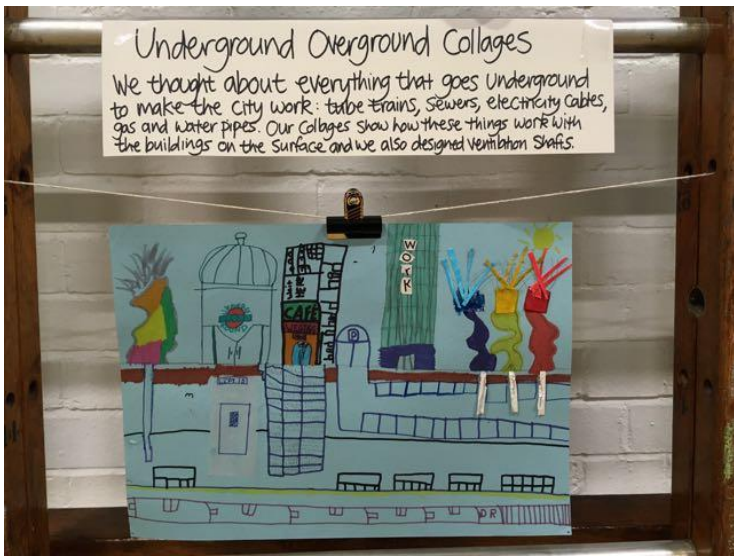 Underground Overground Collages
We thought about everything that goes underground
to make the city work: tube trains, sewers, electricity cables,
gas and water pipes. Our collages show how these things work with
the buildings on the surface and we also designed ventilation shafts.
WORK
CAFE
P